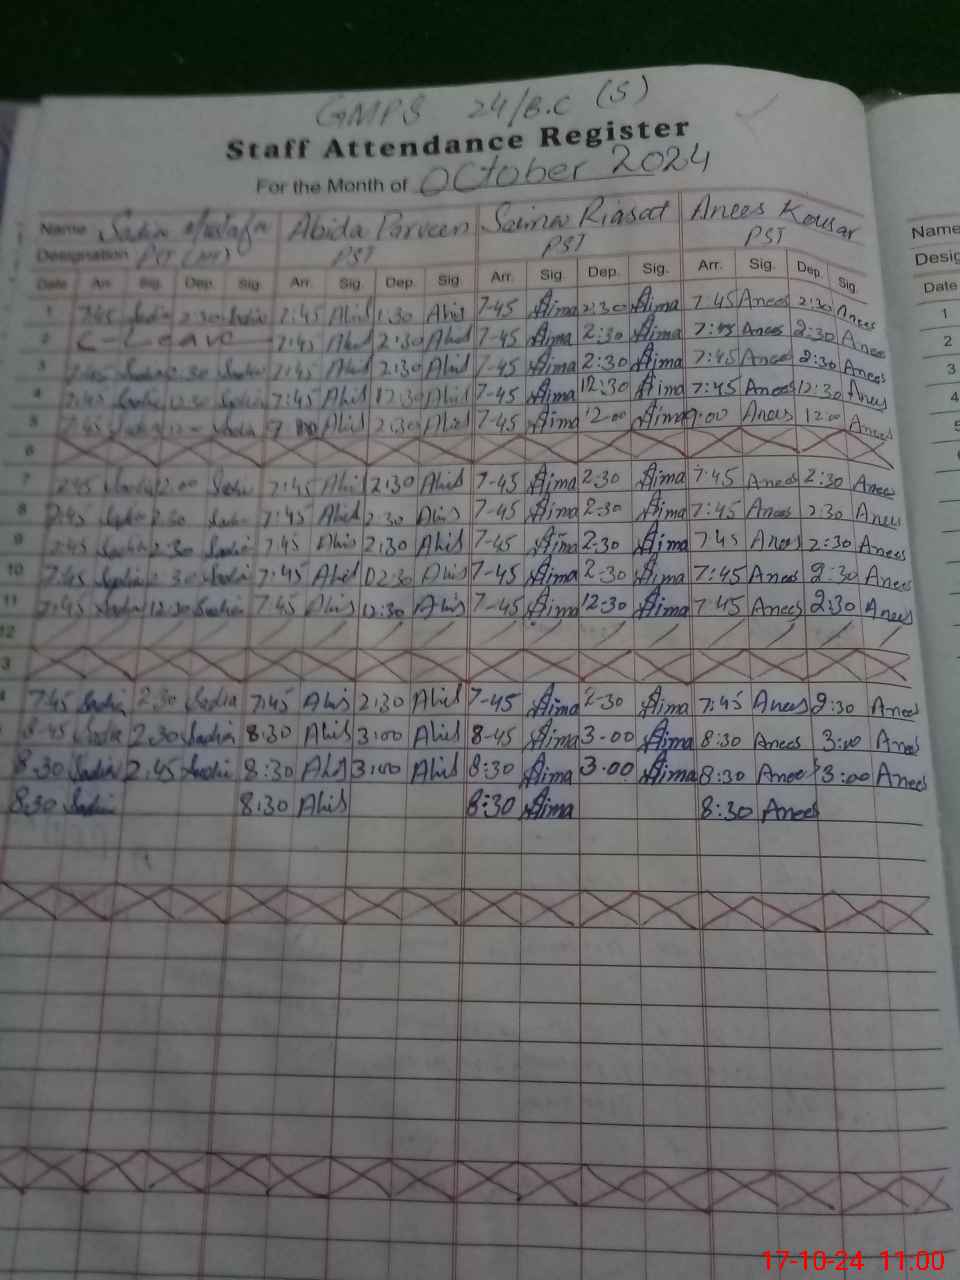 GMPS 24/B.C (S)
Staff Attendance Register
For the Month of October 2024
Name Sadia Abida Parveen Saima Riasat Anees Kousar Name
Designation PST PST PST PST Desig
Date Arr. Sig. Dep. Sig. Arr. Sig. Dep. Sig. Arr. Sig. Dep. Sig. Arr. Sig. Dep. Sig. Date
1 7:45 Sadia 2:30 Sadia 7:45 Abid 1:30 Abid 7-45 Aima 2:30 Aima 7:45 Anees 2:30 Anees 1
2 C-Leave 7:45 Abid 2:30 Abid 7-45 Aima 2:30 Aima 7:45 Anees 2:30 Anees 2
3 7:45 Sadia 2:30 Sadia 7:45 Abid 2:30 Abid 7-45 Aima 2:30 Aima 7:45 Anees 2:30 Anees 3
4 7:45 Sadia 12:30 Sadia 7:45 Abid 12:30 Abid 7-45 Aima 12:30 Aima 7:45 Anees 12:30 Anees 4
5 7:45 Sadia Sadia 7 Abid 2:30 Abid 7-45 Aima 12-00 Aima 9:00 Anees 12:00 Anees 5
6
7 7:45 Sadia 2:00 Sadia 7:45 Abid 2:30 Abid 7-45 Aima 2:30 Aima 7:45 Anees 2:30 Anees
8 7:45 Sadia 2:30 Sadia 7:45 Abid 2:30 Abid 7-45 Aima 2-30 Aima 7:45 Anees 2:30 Anees
9 7:45 Sadia 2:30 Sadia 7:45 Abid 2:30 Abid 7-45 Aima 2-30 Aima 7:45 Anees 2:30 Anees
10 7:45 Sadia 2:30 Sadia 7:45 Abid 02:30 Abid 7-45 Aima 2-30 Aima 7:45 Anees 2:30 Anees
11 7:45 Sadia 12:30 Sadia 7:45 Abid 12:30 Abid 7-45 Aima 12-30 Aima 7:45 Anees 2:30 Anees
12
3
4 7:45 Sadia 2:30 Sadia 7:45 Abid 2:30 Abid 7-45 Aima 2-30 Aima 7:45 Anees 2:30 Anees
8-45 Sadia 2:30 Sadia 8:30 Abid 3:00 Abid 8-45 Aima 3.00 Aima 8:30 Anees 3:00 Anees
8:30 Sadia 2:45 Sadia 8:30 Abid 3:00 Abid 8:30 Aima 3.00 Aima 8:30 Anees 3:00 Anees
8:30 Sadia 8:30 Abid 8:30 Aima 8:30 Anees
17-10-24 11:00